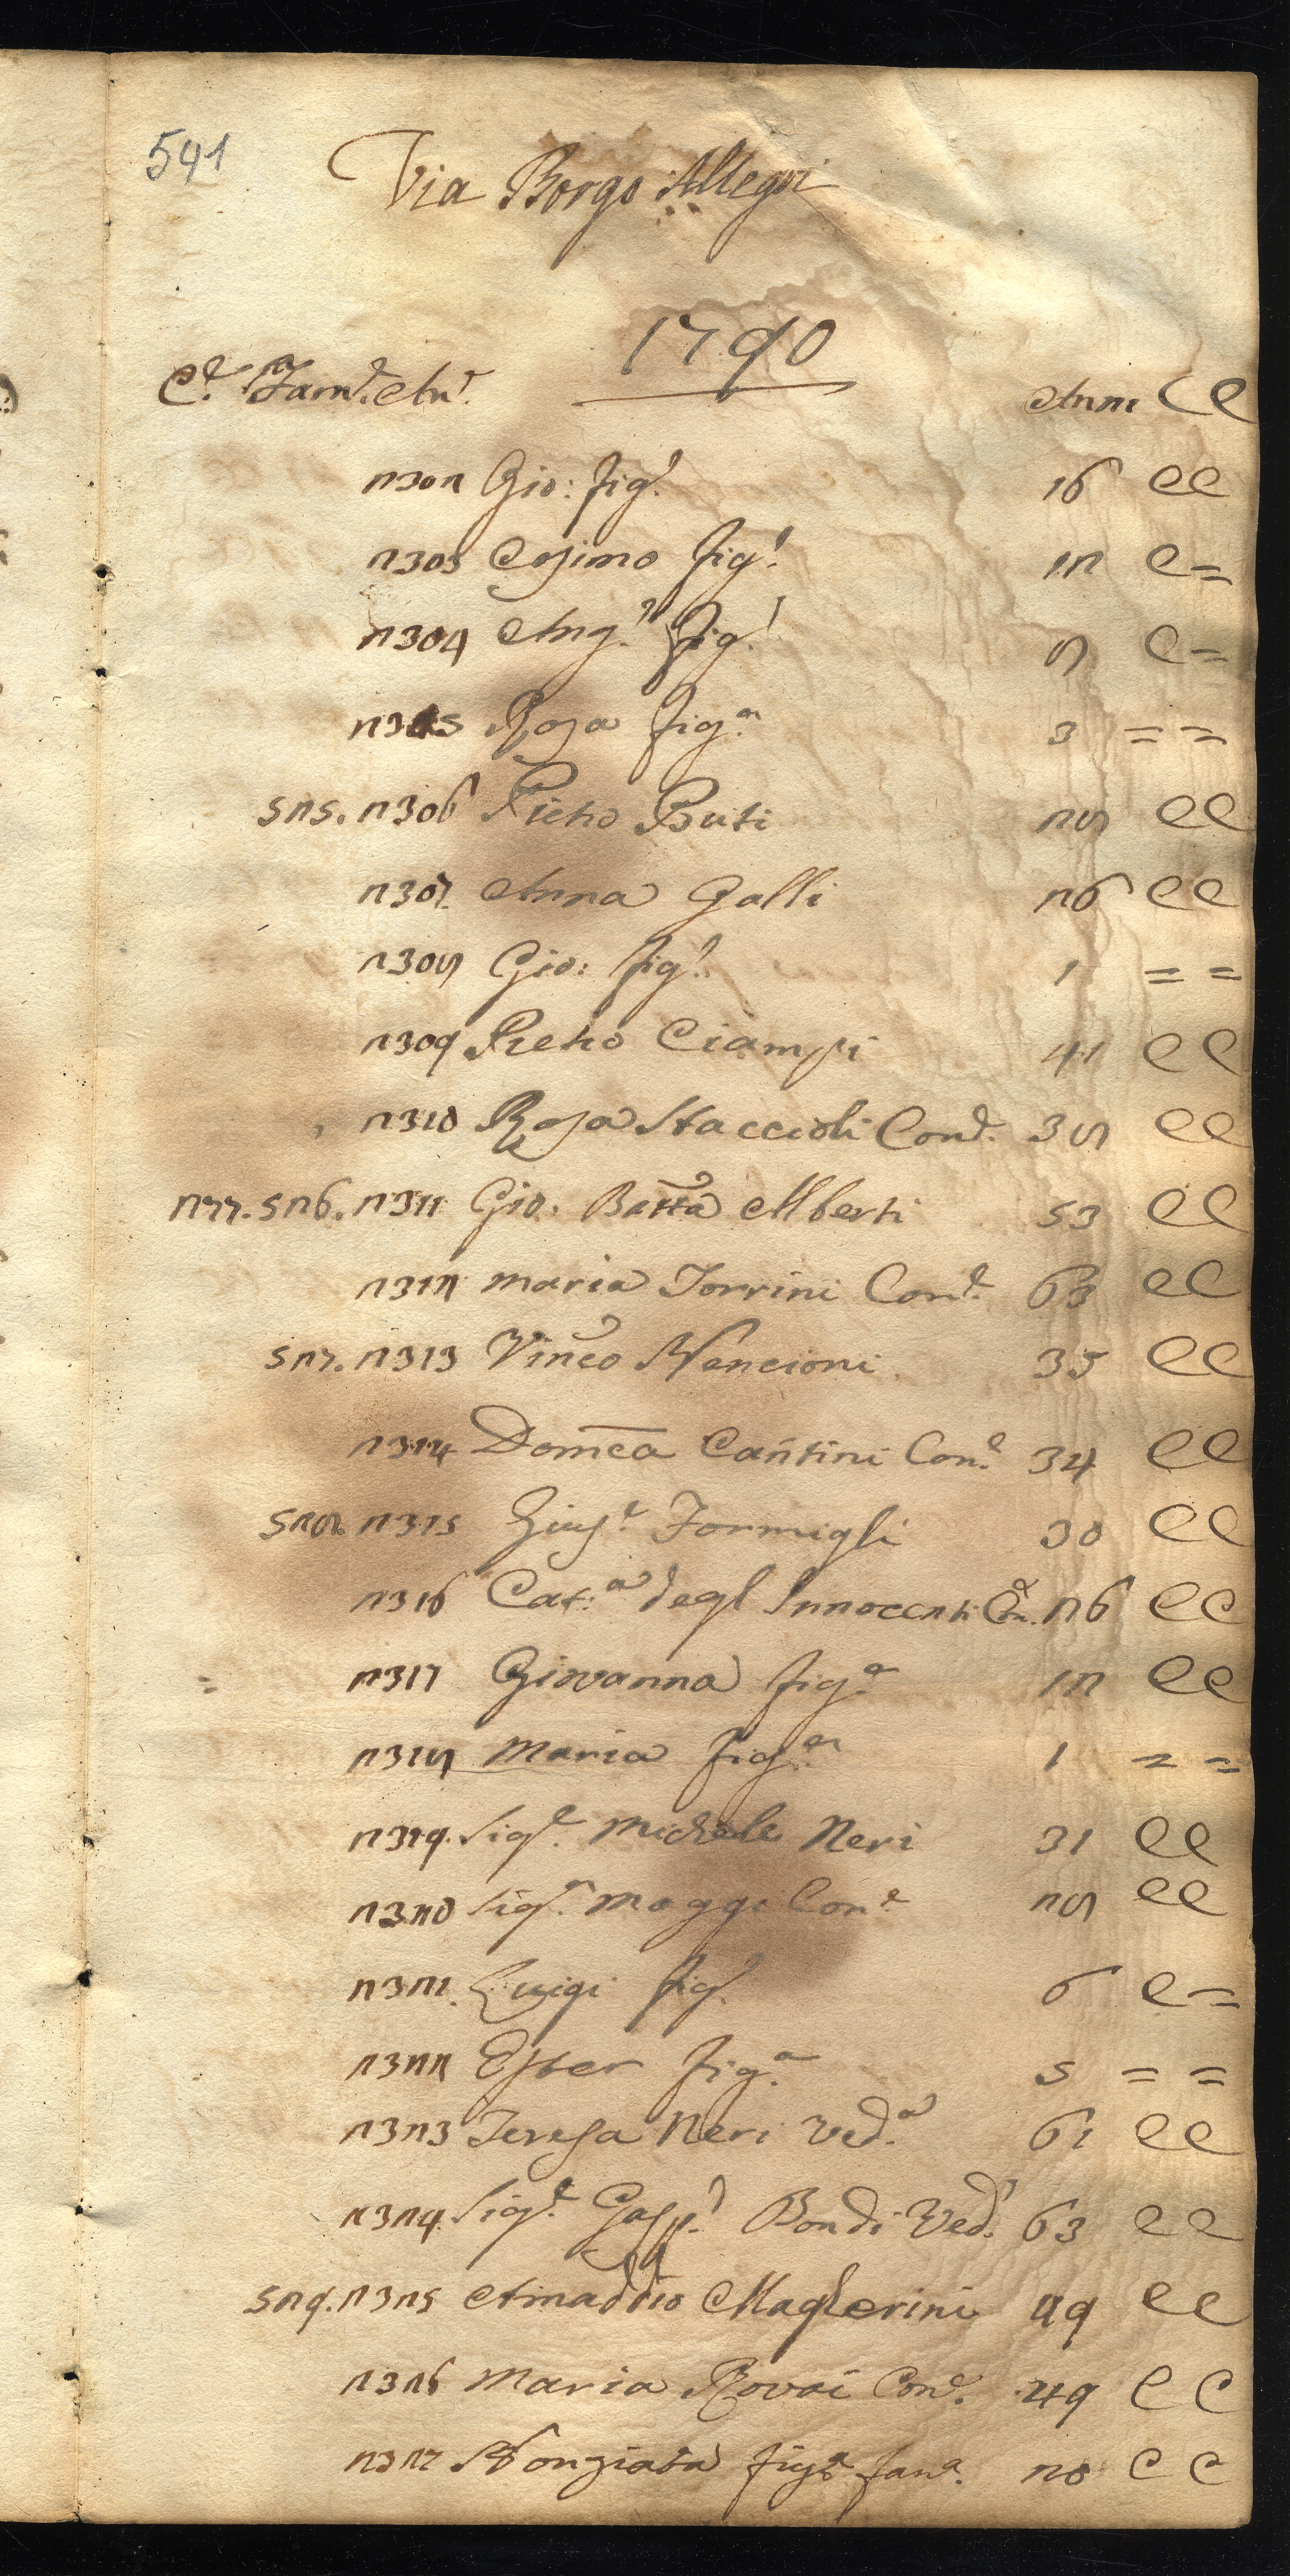 541
Via Borgo Allegri
1790
C.e Fam.e An.e Anni CC
2302 Gio: fig.o 16 CC
2303 Cosimo fig.o 12 C=
2304 Ang.o fig.o 8 C=
2305 Rosa fig.a 3 = =
525. 2306 Pietro Buti 28 CC
2307 Anna Galli 26 CC
2308 Gio: fig.o 1 = =
2309 Pietro Ciampi 41 CC
2310 Rosa Staccioli Con.e 38 CC
277. 526. 2311 Gio: Batta Alberti 53 CC
2312 Maria Torrini Con.e 63 CC
527. 2313 Vinco Nencioni 35 CC
2314 Domca Cantini Con.e 34 CC
528. 2315 Gius.e Formigli 30 CC
2316 Cat.a degl Innocenti Con.e 26 CC
2317 Giovanna fig.a 12 CC
2318 Maria fig.a 1 = =
2319. Sig.e Michele Neri 31 CC
2320 Sig.a Maggi Con.e 28 CC
2321. Luigi fig.o 6 C=
2322 Ester fig.a 5 = =
2323 Teresa Neri Ved.a 61 CC
2324. Sig.e Gasp.o Bondi Ved.o 63 CC
529. 2325 Amaddio Magherini 49 CC
2326 Maria Rovai Con.e 49 CC
2327 Nonziata fig.a fan.a 20 CC